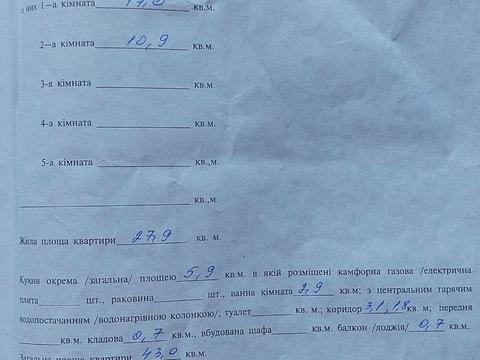 із них 1—а кімната 17,0 кв.м.
2—а кімната 10,9 кв.м.
3-я кімната кв.м.
4-а кімната кв.м.
5-а кімната кв.,м.
кв.,м.
Жила площа квартири 27,9 кв. м.
Кухня окрема /загальна/ площею 5,9 кв.м. в якій розміщені камфорна газова /електрична
плита шт., раковина шт., ванна кімната 2,9 кв.м; з центральним гарячим
водопостачанням /водонагрівною колонкою/; туалет кв. м; коридор 3,1, 1,8 кв. м; передня
кв.м. кладова 0,7 кв.м., вбудована шафа кв.м. балкон /лоджія/ 0,7 кв.м.
Загальна площа квартири 43,0 кв.м.